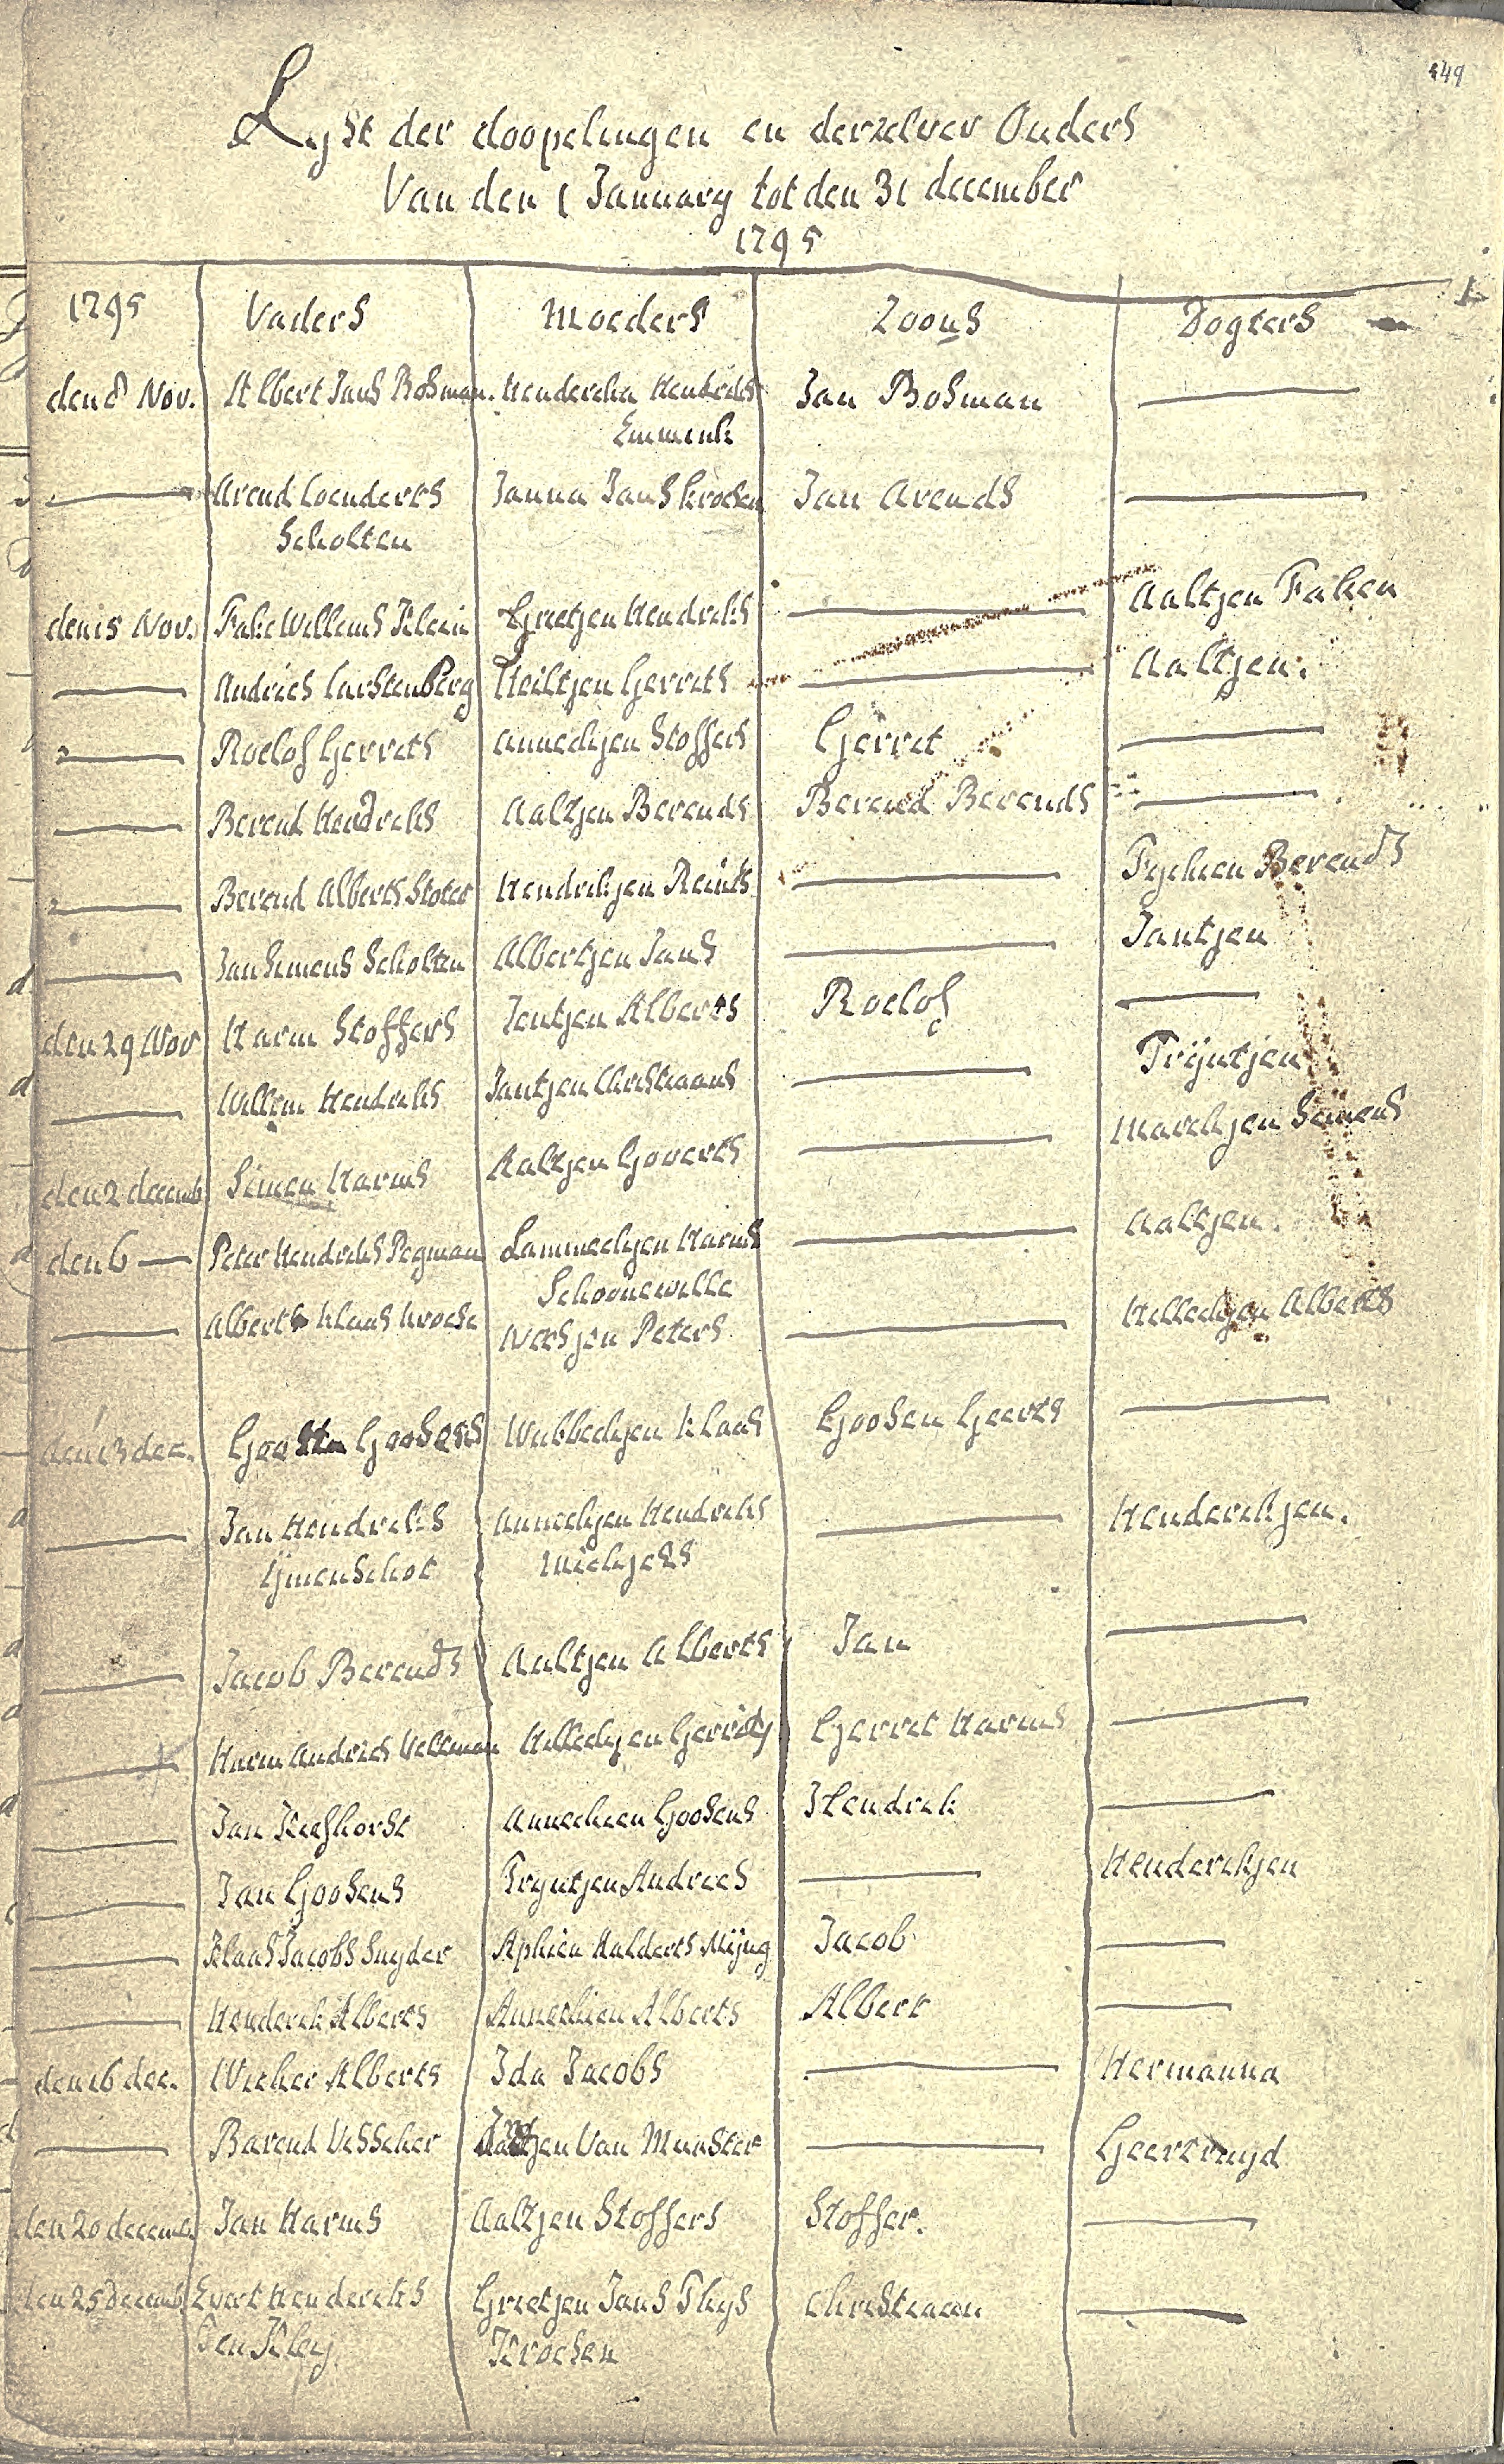 449
Lyst der doopelingen en derzelver Ouders
Van den 1 January tot den 31 december
1795
1795 Vaders Moeders Zoons Dogters
den 8 Nov. Albert Jans Bosman. Henderika Hendriks Jan Bosman
Emmink
Arend Coenderts Janna Jans krosen Jan Arends
Scholten
den 15 Nov. Fake Willems Klein Grietjen Hendriks Aaltjen Faken
Andries Carstenberg Heiltjen Gerrets Aaltjen.
Roelof Gerrets Annechjen Stoffers Gerret
Berend Hendriks Aaltjen Berends Berend Berends
Berend Alberts Stoter Hendrikjen Reints Tychien Berends
Jan Simens Scholten Albertjen Jans Jantjen
den 29 Nov Harm Stoffers Jentjen Alberts Roelof
Willem Hendriks Jantjen Christiaans Trÿntjen
den 2 decemb Simen Harms Aaltjen Goverts Marchjen Simens
den 6 Peter Hendriks Pegman Lammechjen Harms Aaltjen.
Schoonewille
Albert Klaas krose Neesjen Peters Hillechjen Alberts
den 13 dec. Goosens Wubbechjen Klaas Goosen Geerts
Jan Hendriks Annechjen Hendriks Henderikjen.
Ymenschot Michjels
Jacob Berends Aaltjen Alberts Jan
Harm Andries Veltman Hillechjen Gerrits Gerret Harms
Jan Kieshorst Annechien Goosens Hendrik
Jan Goosens Tryntjen Andrees Henderikjen
Klaas Jacobs Snyder Aphien Halderts Mÿng Jacob
Henderik Alberts Annechien Alberts Albert
den 16 dec. Wicher Alberts Ida Jacobs Hermanna
Barend Visscher Van Munster Geertruyd
den 20 decemb Jan Harms Aaltjen Stoffers Stoffer.
den 25 decemb Evert Henderiks Grietjen Jans Thys Christiaan
Ten Kley Krosen